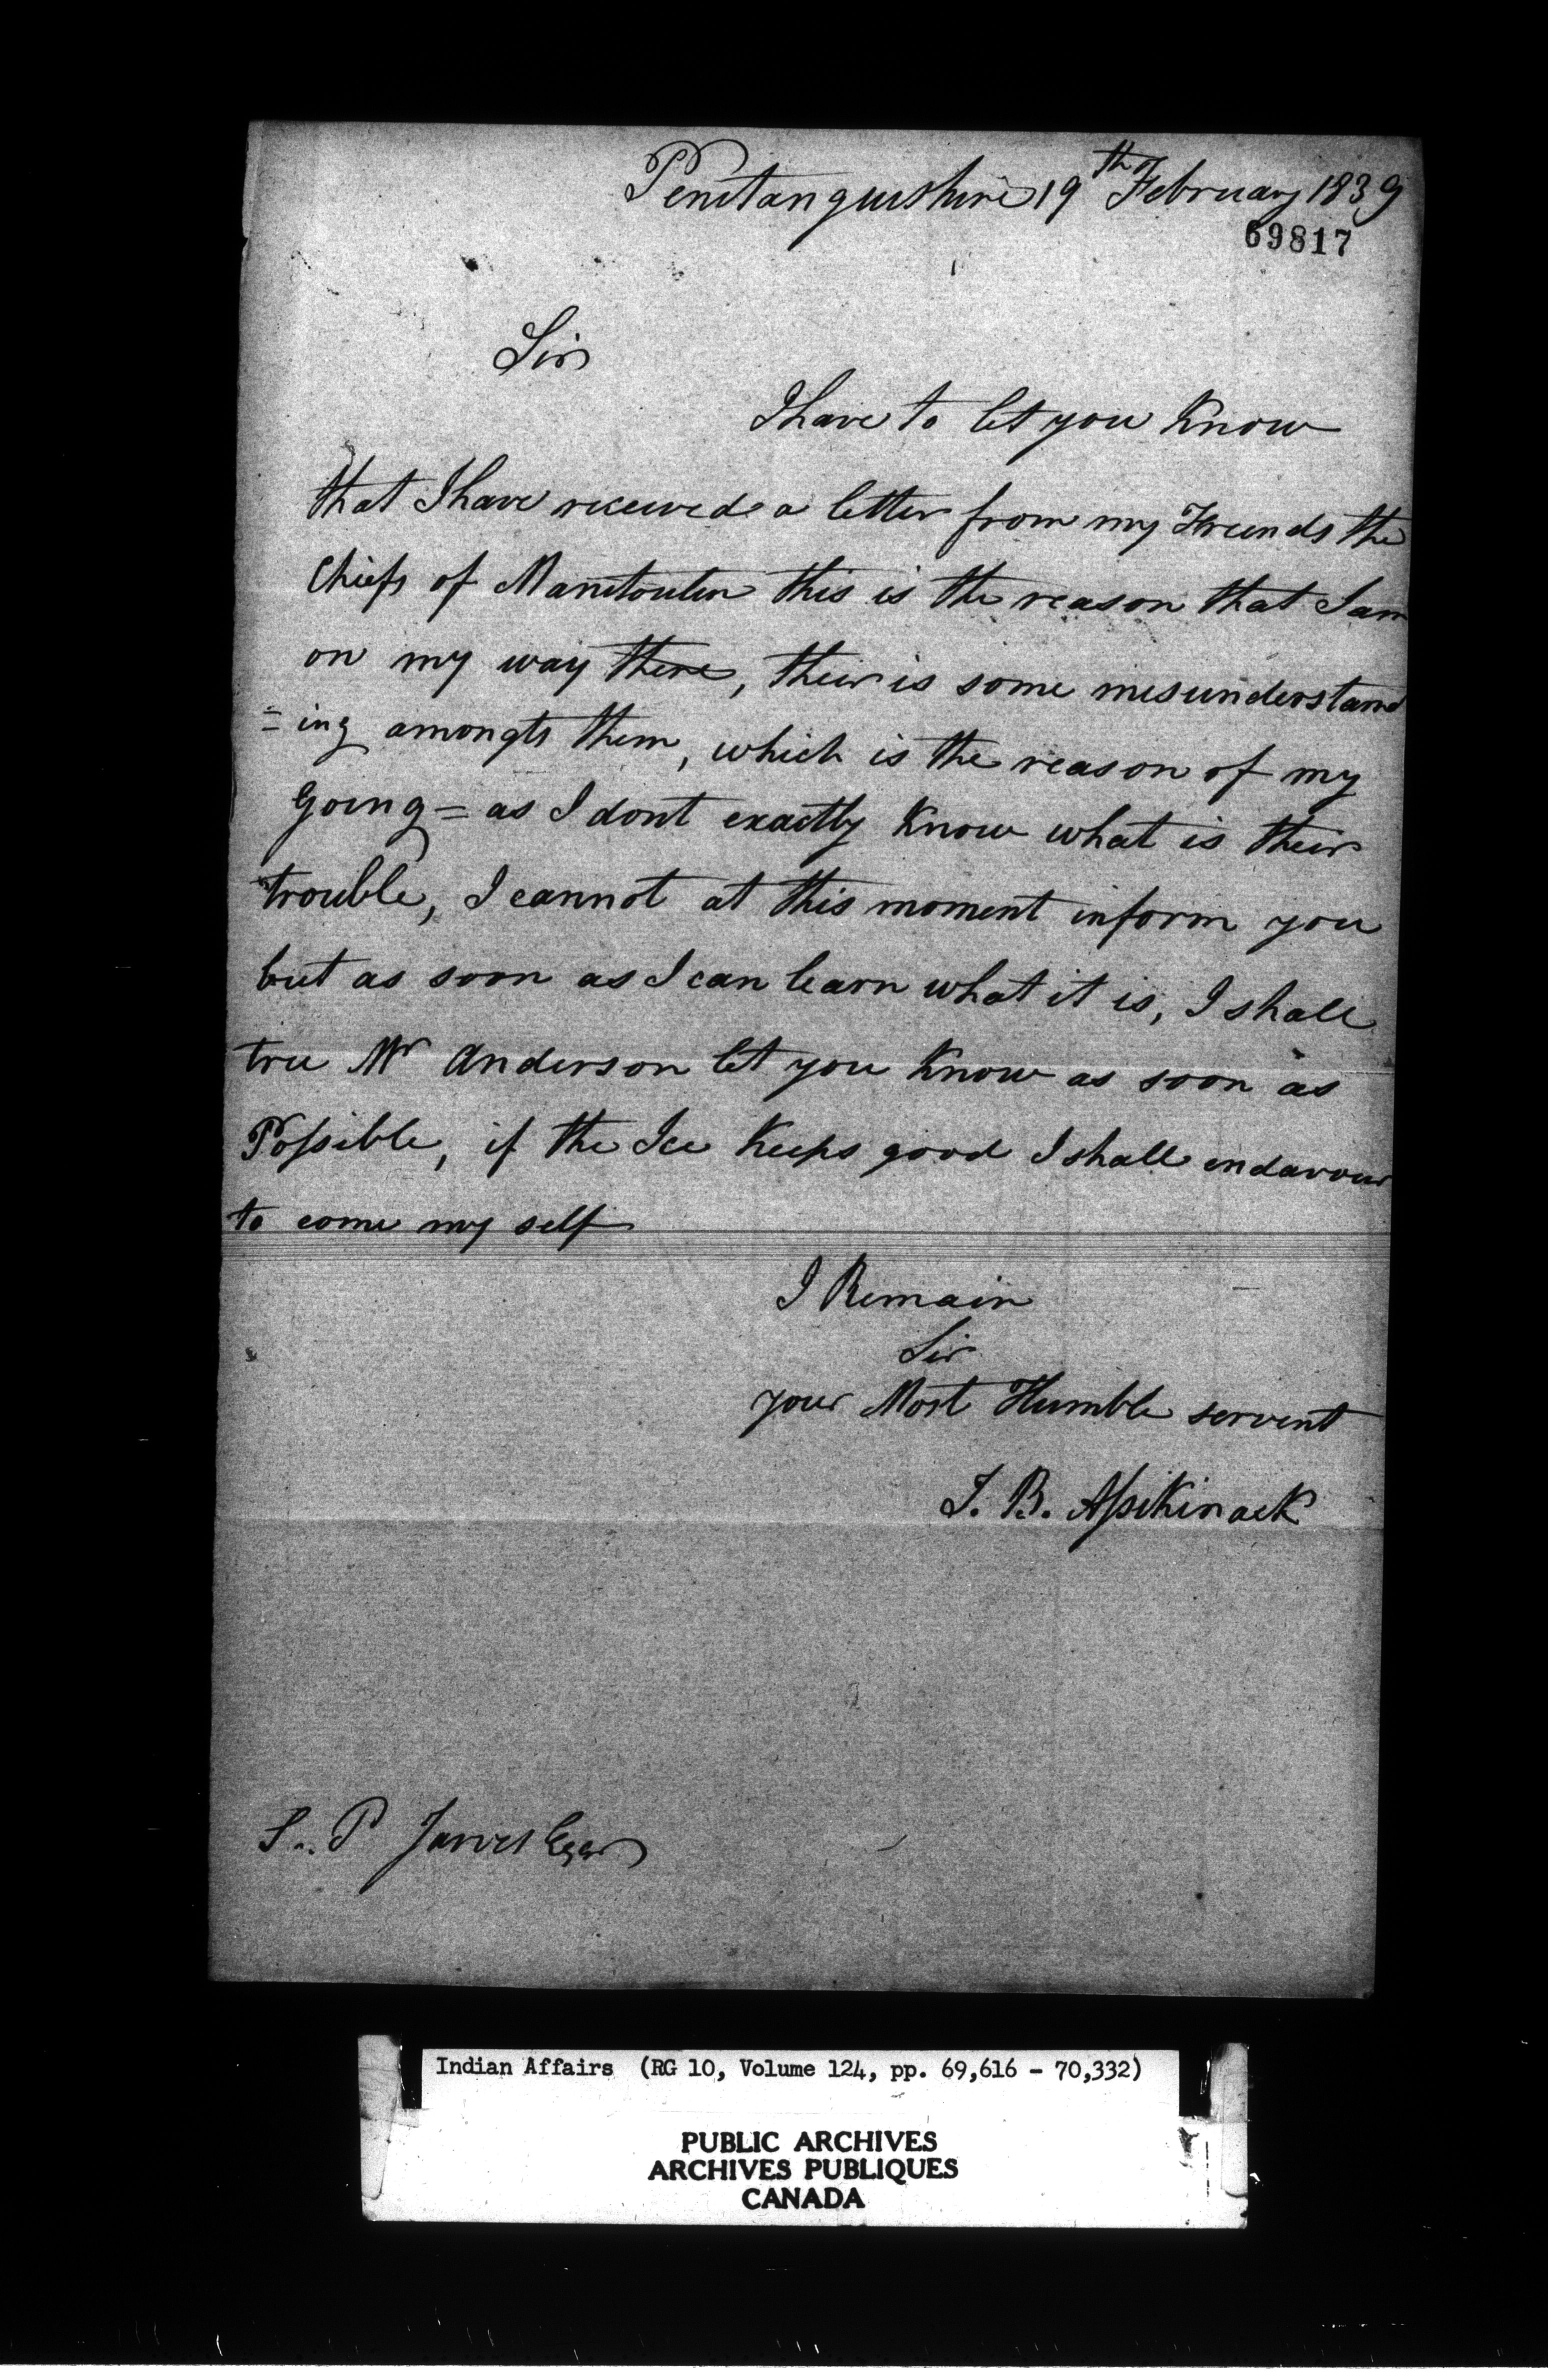 Penetanguishine 19th February 1839
69817
Sir
I have to let you Know
that I have received a letter from my Freinds the
Chiefs of Manitoulin this is the reason that I am
on my way there, their is some misunderstand
=ing amongts them, which is the reason of my
Going = as I dont exactly Know what is their
trouble, I cannot at this moment inform you
but as soon as I can learn what it is, I shall
tru Mr Anderson let you Know as soon as
Possible, if the Ice Keeps good I shall endavour
to come my self
I Remain
Sir
your Most Humble servent
J. B. AssiKinack
S. P Jarvis Esqr
Indian Affairs (RG 10, Volume 124, pp. 69,616 - 70,332)
PUBLIC ARCHIVES
ARCHIVES PUBLIQUES
CANADA